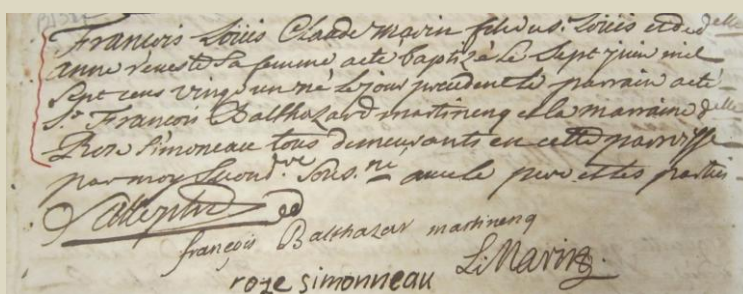 François Loüis Claude marin fils du s.r Loüis et de d.elle
anne reveste sa femme a eté baptizé le Sept juin mil
Sept cens vingt un né le jour precedent le parrain a eté
S.r François Balthazard martineng et la marraine d.elle
Rose Simoneau tous demeurants en cette parroisse
par moy Second.re Sous.né avec le pere et les parties
françois Balthazar martinenq
roze simonneau L. Marin